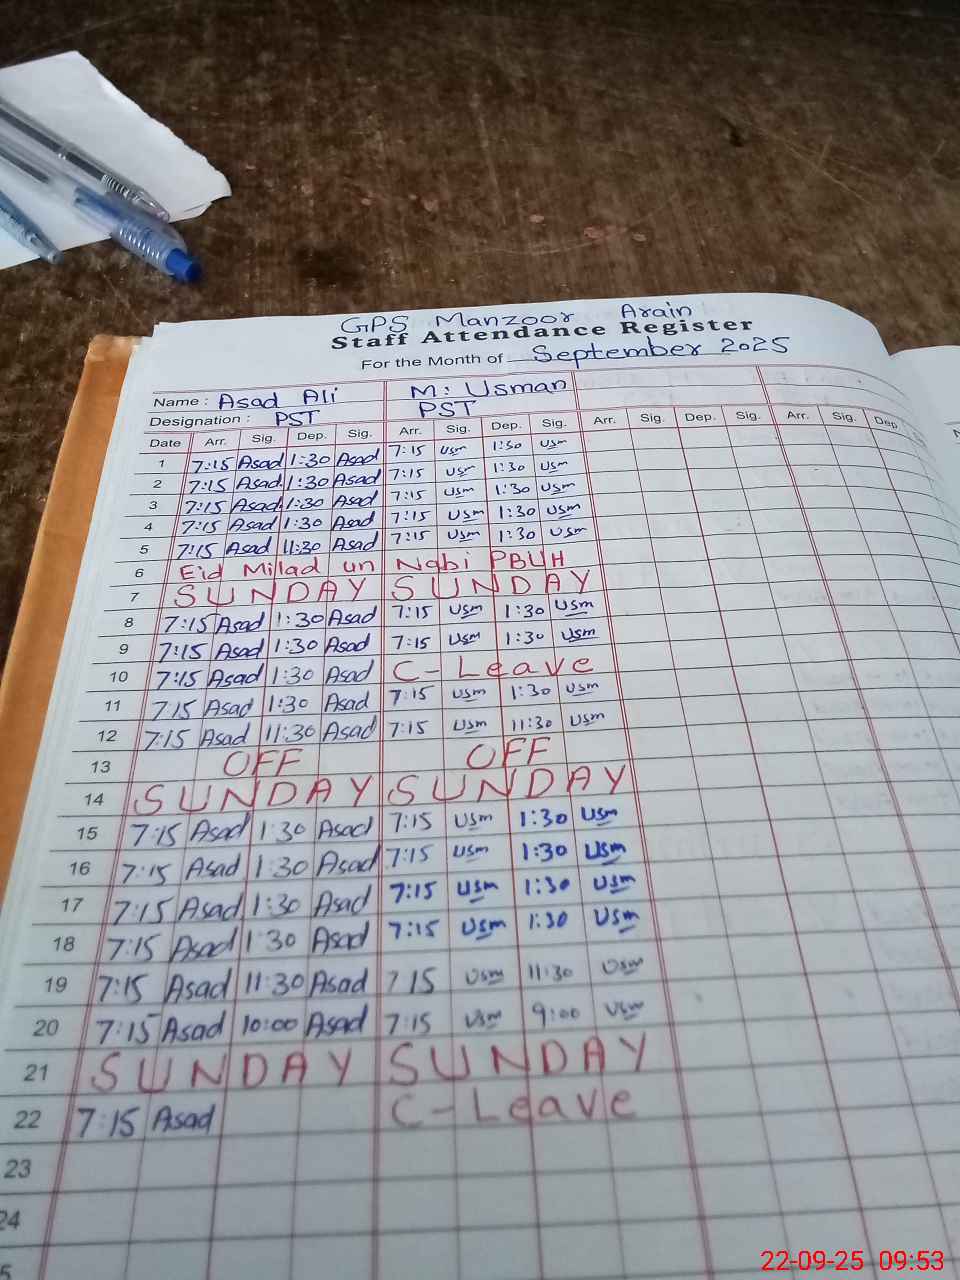 GPS Manzoor Arain
Staff Attendance Register
For the Month of September 2025
Name : Asad Ali M: Usman
Designation : PST PST
Date Arr. Sig. Dep. Sig. Arr. Sig. Dep. Sig. Arr. Sig. Dep. Sig. Arr. Sig. Dep
1 7:15 Asad 1:30 Asad 7:15 Usm 1:30 Usm
2 7:15 Asad 1:30 Asad 7:15 Usm 1:30 Usm
3 7:15 Asad 1:30 Asad 7:15 Usm 1:30 Usm
4 7:15 Asad 1:30 Asad 7:15 Usm 1:30 Usm
5 7:15 Asad 11:30 Asad 7:15 Usm 1:30 Usm
6 Eid Milad un Nabi PBUH
7 SUNDAY SUNDAY
8 7:15 Asad 1:30 Asad 7:15 Usm 1:30 Usm
9 7:15 Asad 1:30 Asad 7:15 Usm 1:30 Usm
10 7:15 Asad 1:30 Asad C-Leave
11 7:15 Asad 1:30 Asad 7:15 Usm 1:30 Usm
12 7:15 Asad 11:30 Asad 7:15 Usm 11:30 Usm
13 OFF OFF
14 SUNDAY SUNDAY
15 7:15 Asad 1:30 Asad 7:15 Usm 1:30 Usm
16 7:15 Asad 1:30 Asad 7:15 Usm 1:30 Usm
17 7:15 Asad 1:30 Asad 7:15 Usm 1:30 Usm
18 7:15 Asad 1:30 Asad 7:15 Usm 1:30 Usm
19 7:15 Asad 11:30 Asad 7 15 Usm 11:30 Usm
20 7:15 Asad 10:00 Asad 7:15 Usm 9:00 Usm
21 SUNDAY SUNDAY
22 7:15 Asad C-Leave
23
24
22-09-25 09:53